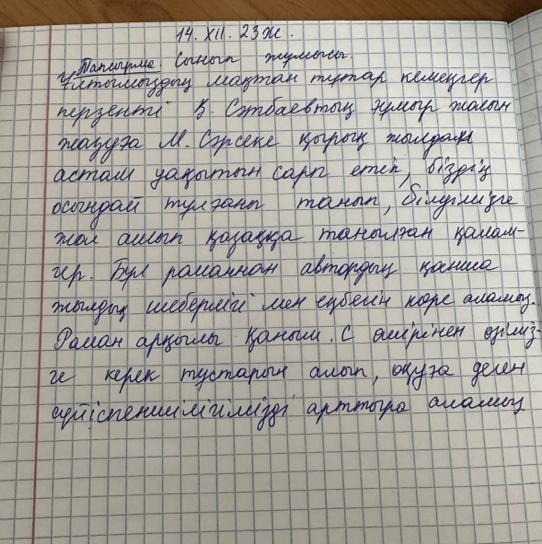 14. XII. 23ж.
Тапсырма. Сынып жұмысы.
Ұлтымыздың мақтан тұтар кемеңгер
перзенті Қ. Сәтбаевтың ғұмыр жолын
жазуға М. Сәрсеке қырық жылдан
астам уақытын сарп етіп, біздің
осындай тұлғаны танып, білуімізге
жол ашып қазаққа танылған қалам-
гер. Бұл романнан автордың қанша
жылдық шеберлігі мен еңбегін көре аламыз.
Роман арқылы Қаныш. С өмірінен өзіміз-
ге керек тұстарын алып, оқуға деген
сүйіспеншілігімізді арттыра аламыз